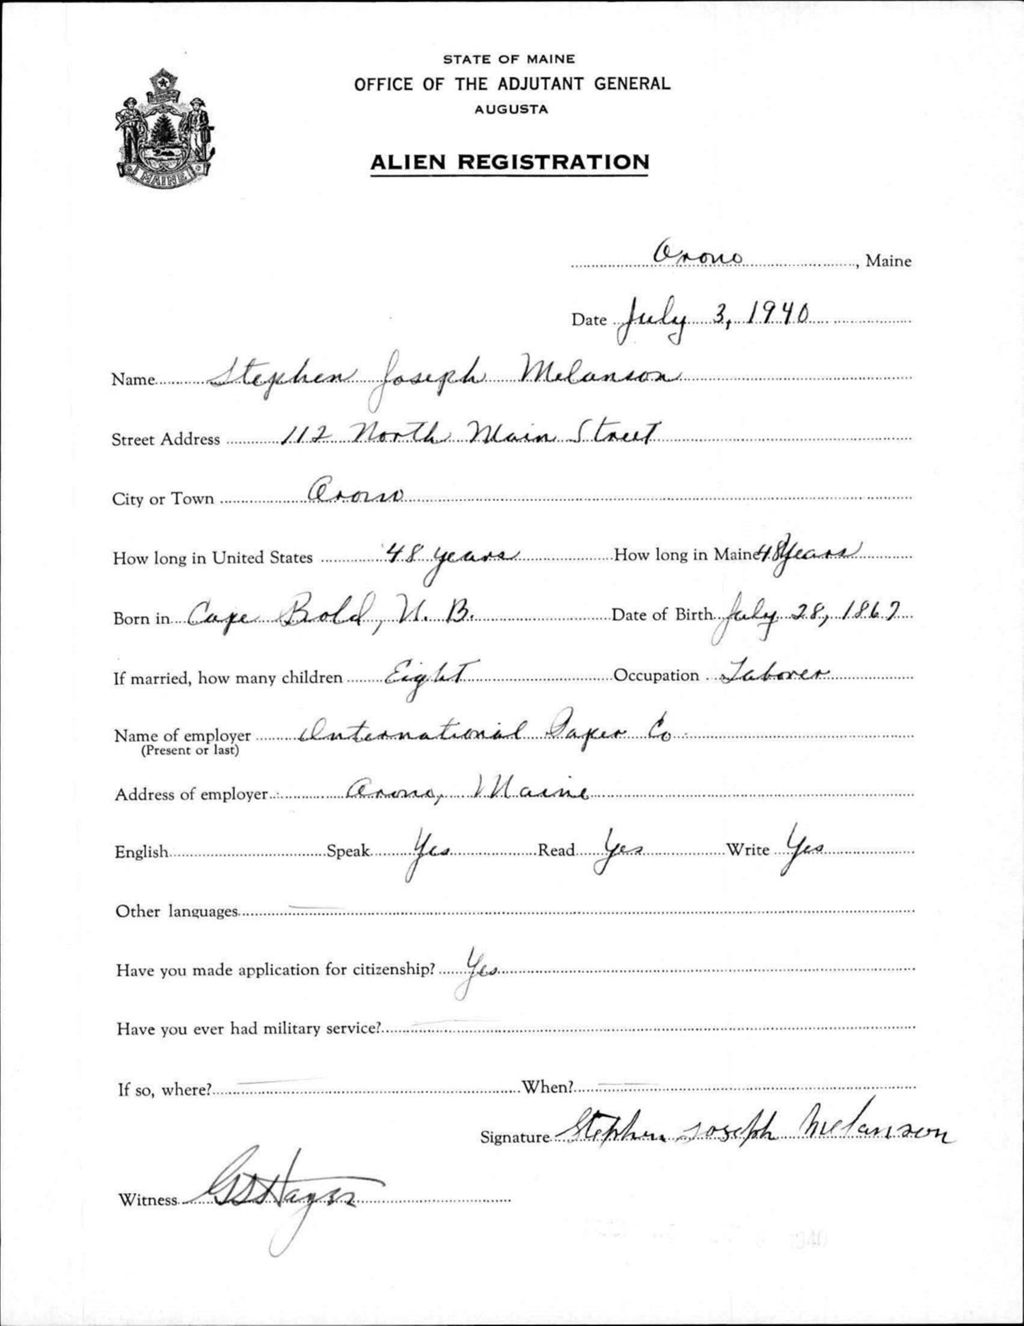 STATE OF MAINE
OFFICE OF THE ADJUTANT GENERAL
AUGUSTA
ALIEN REGISTRATION
MAINE
Orono, Maine
Date July 3, 1940
Name Stephen Joseph Melanson
Street Address 112 North Main Street
City or Town Orono
How long in United States 48 years How long in Maine 48 years
Born in Cape Bold, N. B. Date of Birth July 28, 1867
If married, how many children Eight Occupation Laborer
Name of employer International Paper Co
(Present or last)
Address of employer Orono, Maine
English Speak Yes Read Yes Write Yes
Other languages
Have you made application for citizenship? Yes
Have you ever had military service?
If so, where? When?
Signature Stephen Joseph Melanson
Witness Hayes